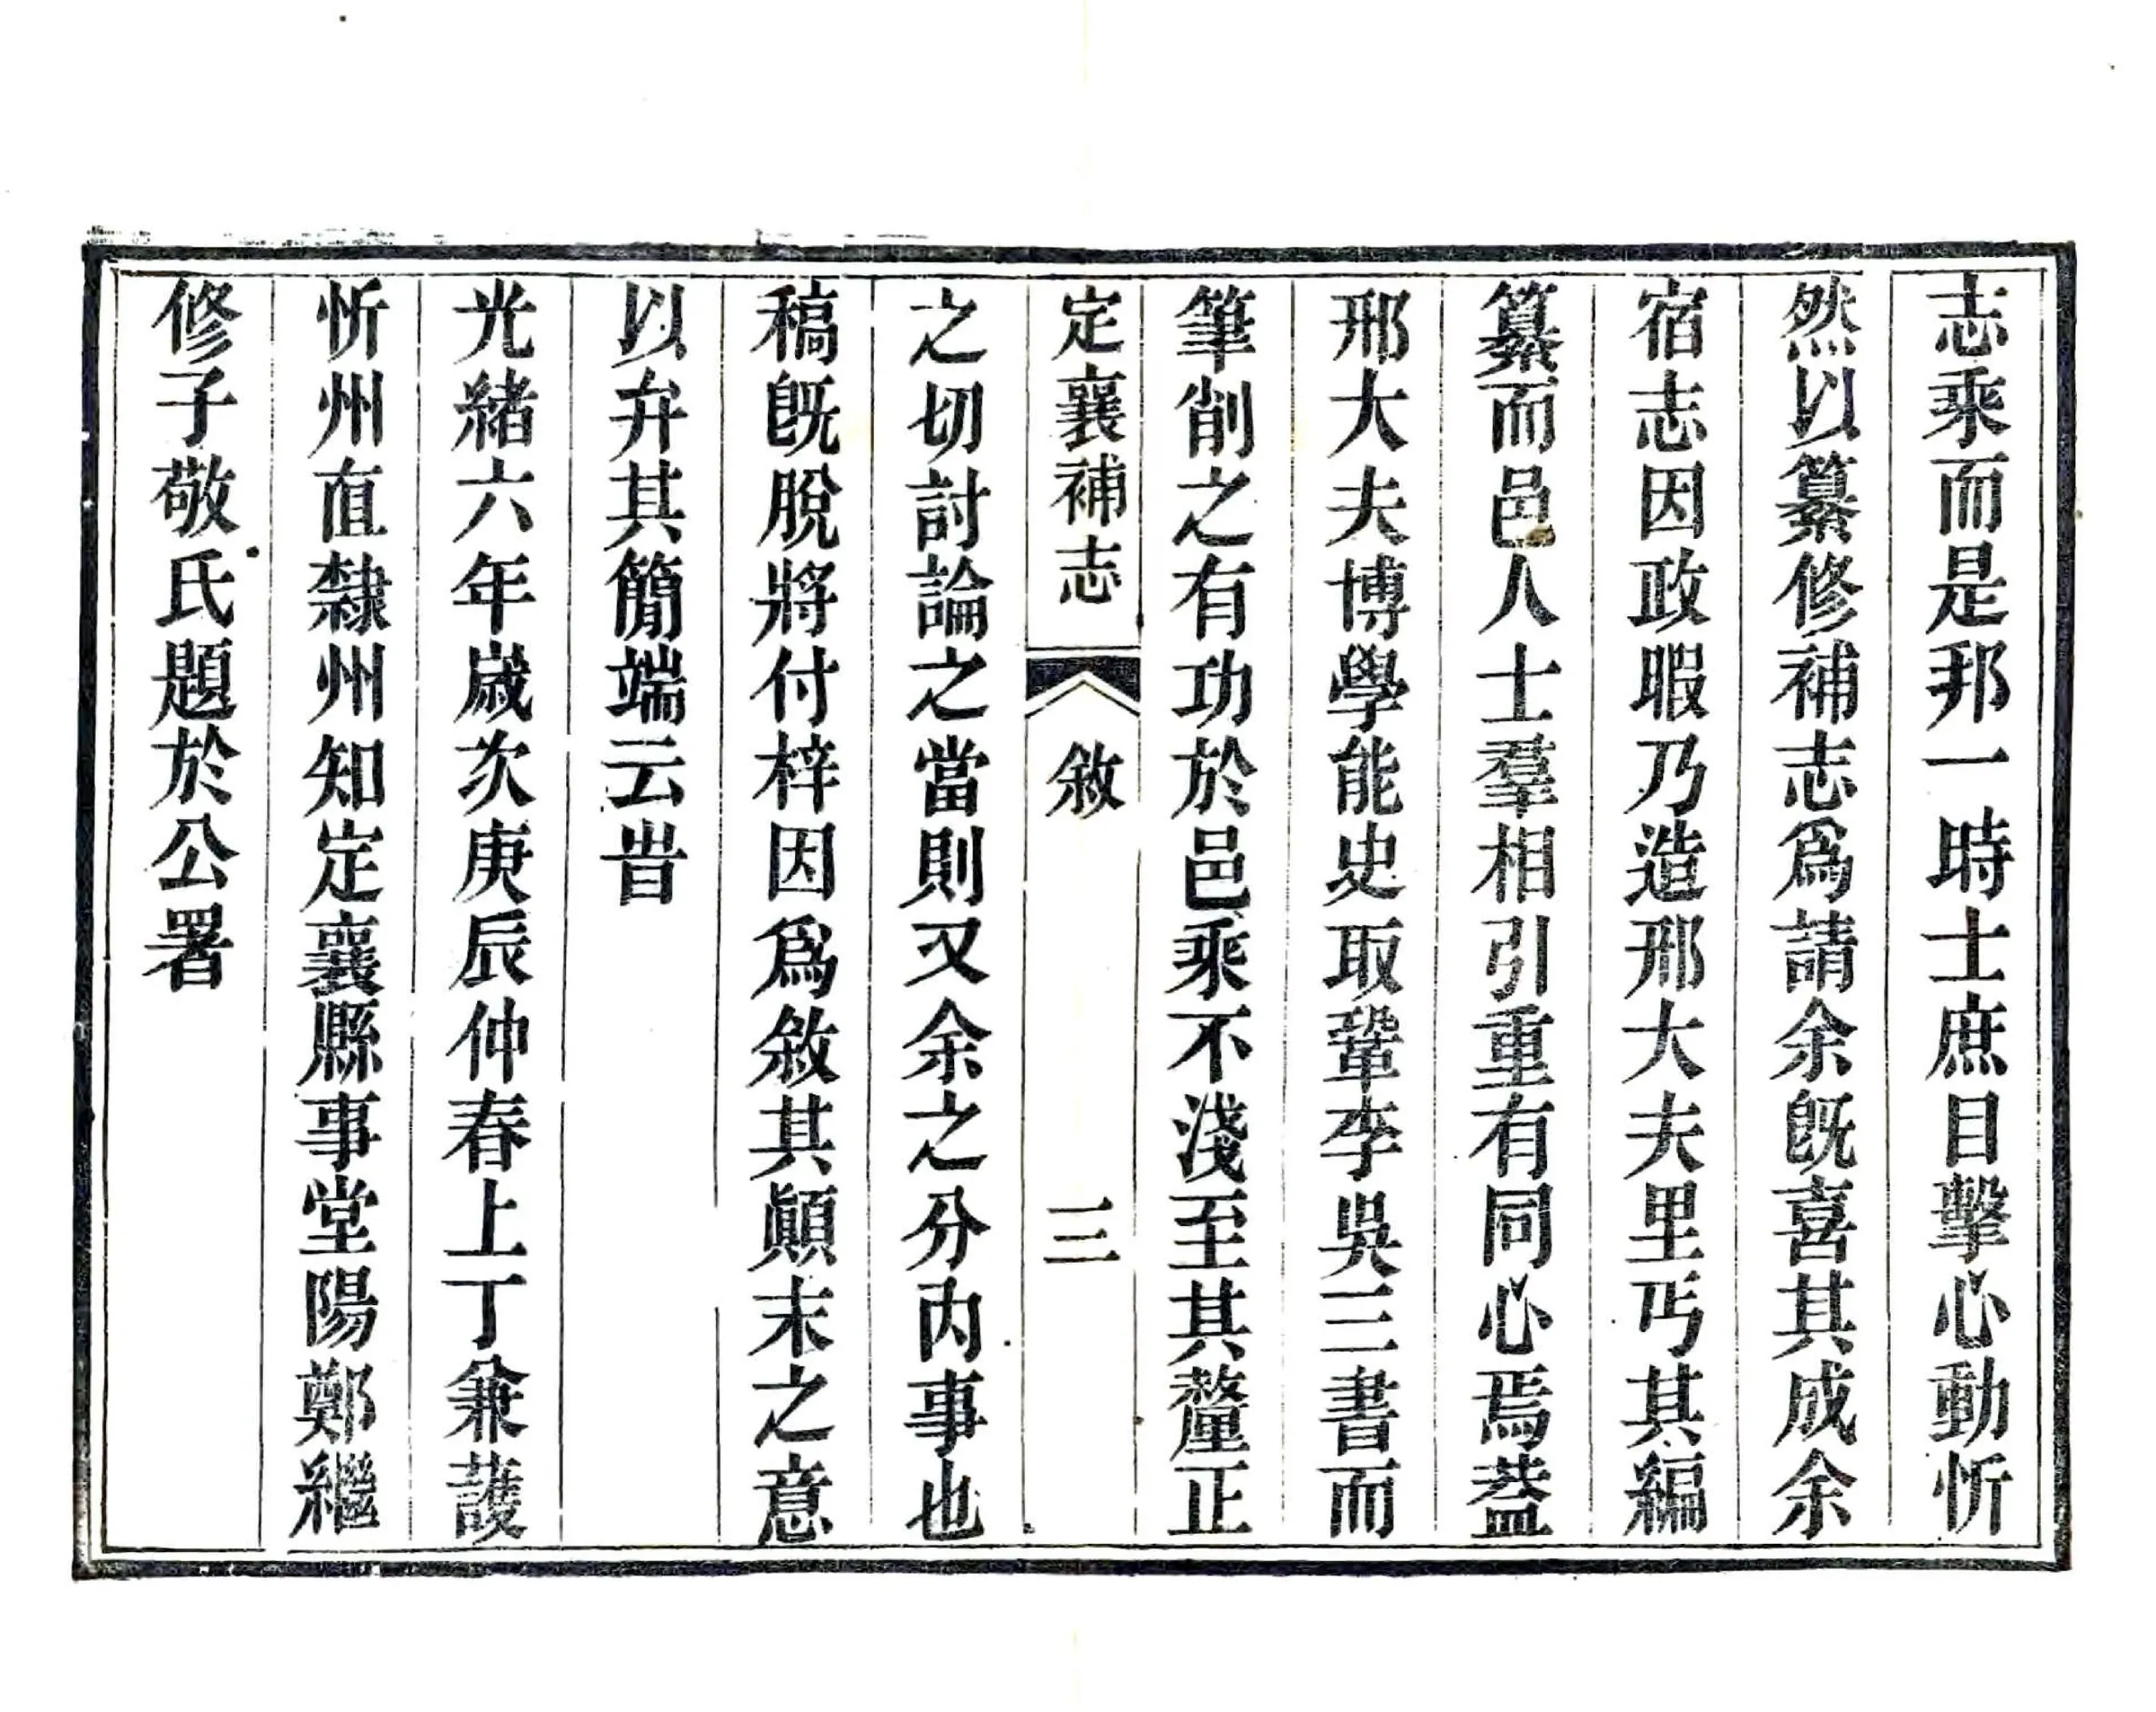 志乘而是邦一時士庶目擊心動忻
然以纂修補志爲請余旣喜其成余
宿志因政暇乃造邢大夫里丐其編
纂而邑人士羣相引重有同心焉葢
邢大夫博學能史取鞏李吳三書而
筆削之有功於邑乘不淺至其釐正
定襄補志
敘
三
之切討論之當則又余之分內事也
稿旣脫將付梓因爲敘其顚末之意
以弁其簡端云旹
光緒六年歲次庚辰仲春上丁兼護
忻州直隸州知定襄縣事堂陽鄭繼
修子敬氏題於公署